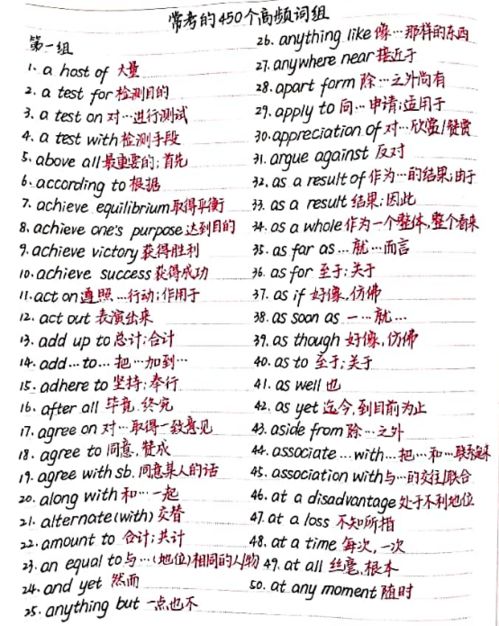 常考的450个高频词组
第一组
1. a host of 大量
2. a test for 检测目的
3. a test on 对…进行测试
4. a test with 检测手段
5. above all 最重要的;首先
6. according to 根据
7. achieve equilibrium 取得平衡
8. achieve one's purpose 达到目的
9. achieve victory 获得胜利
10. achieve success 获得成功
11. act on 遵照…行动;作用于
12. act out 表演出来
13. add up to 总计;合计
14. add…to… 把…加到…
15. adhere to 坚持;奉行
16. after all 毕竟,终究
17. agree on 对…取得一致意见
18. agree to 同意,赞成
19. agree with sb. 同意某人的话
20. along with 和…一起
21. alternate (with) 交替
22. amount to 合计;共计
23. an equal to 与…(地位)相同的人物
24. and yet 然而
25. anything but 一点也不
26. anything like 像…那样的东西
27. anywhere near 接近于
28. apart form 除…之外尚有
29. apply to 向…申请;适用于
30. appreciation of 对…欣赏/赞赏
31. argue against 反对
32. as a result of 作为…的结果;由于
33. as a result 结果;因此
34. as a whole 作为一个整体,整个看来
35. as far as …就…而言
36. as for 至于;关于
37. as if 好像,仿佛
38. as soon as 一…就…
39. as though 好像,仿佛
40. as to 至于;关于
41. as well 也
42. as yet 迄今,到目前为止
43. aside from 除…之外
44. associate …with… 把…和…联系起来
45. association with 与…的交往/联合
46. at a disadvantage 处于不利地位
47. at a loss 不知所措
48. at a time 每次,一次
49. at all 丝毫,根本
50. at any moment 随时